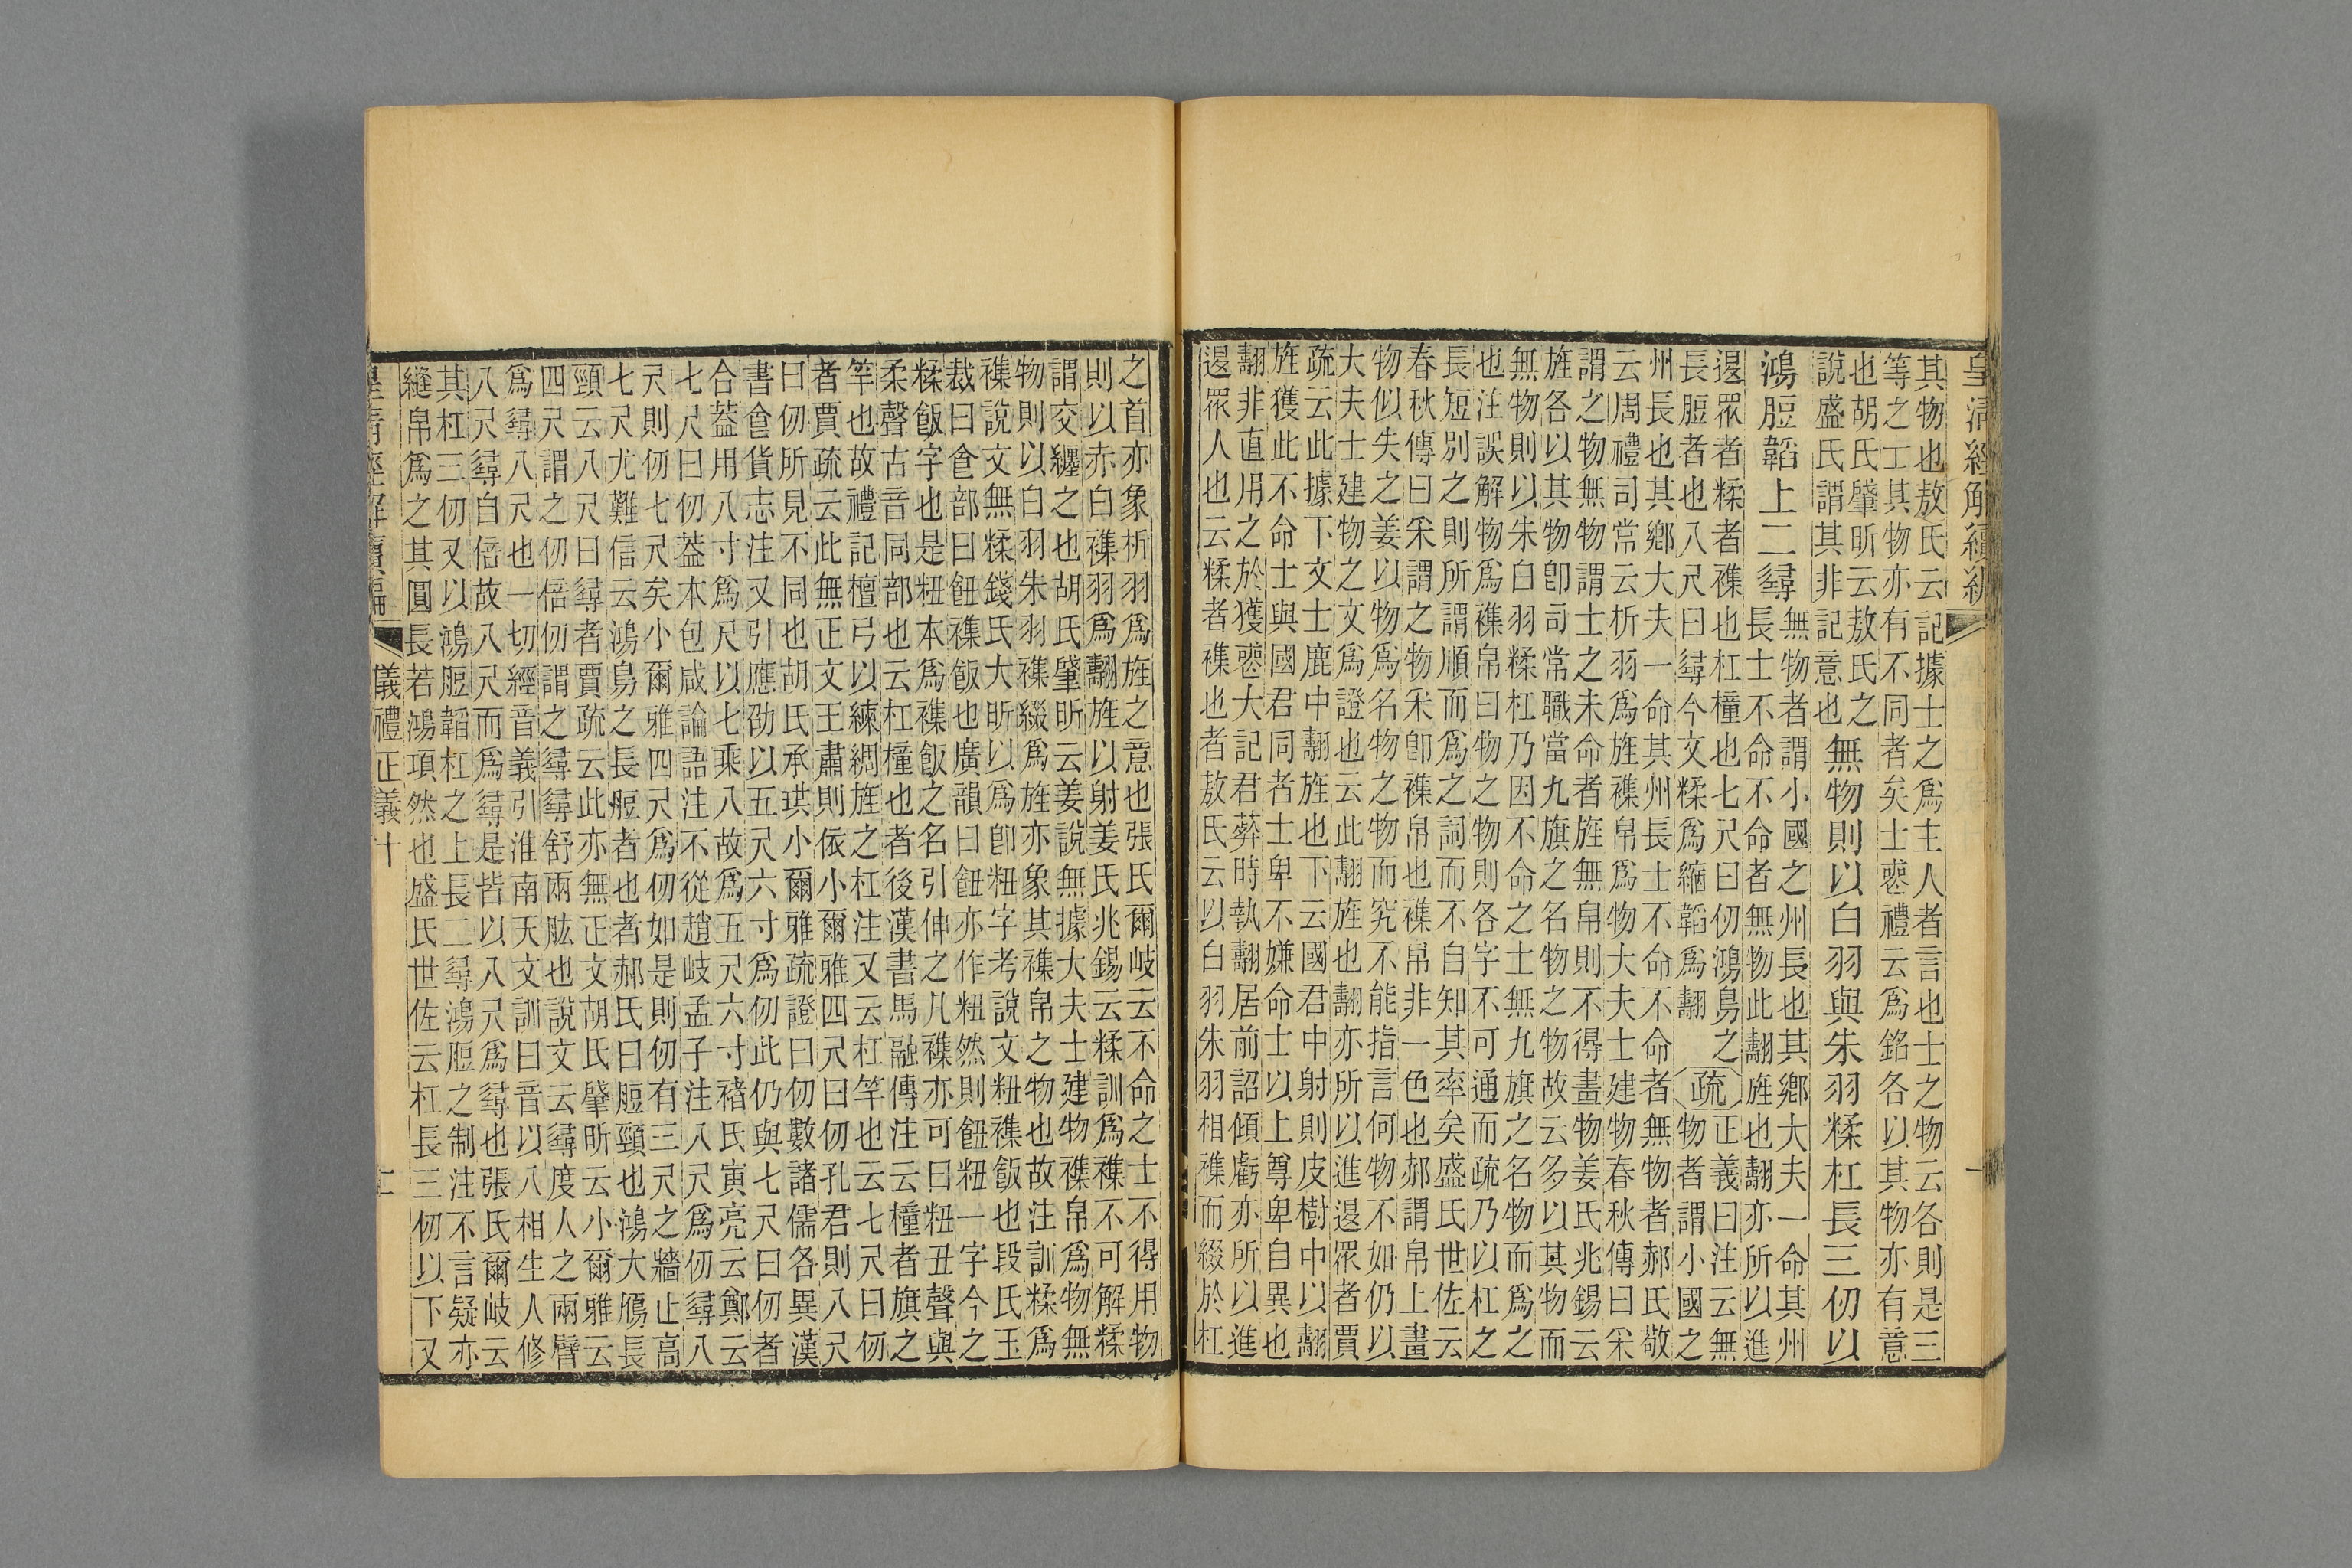 皇清經解續編
一
其物也敖氏云記據士之爲主人者言也士之物云各則是三
等之工其物亦有不同者矣士喪禮云爲銘各以其物亦有意
也胡氏肇昕云敖氏之
說盛氏謂其非記意也
無物則以白羽與朱羽糅杠長三仞以
鴻脰韜上二尋
無物者謂小國之州長也其鄉大夫一命其州
長士不命不命者無物此翿旌也翿亦所以進
退眾者糅者襍也杠橦也七尺曰仞鴻鳥之
長脰者也八尺曰尋今文糅爲縮韜爲翿
疏
正義曰注云無
物者謂小國之
州長也其鄉大夫一命其州長士不命不命者無物者郝氏敬
云周禮司常云析羽爲旌襍帛爲物大夫士建物春秋傳曰采
謂之物無物謂士之未命者旌無帛則不得畫物姜氏兆錫云
旌各以其物卽司常職當九旗之名物之物故云多以其物而
無物則以朱白羽糅杠乃因不命之士無九旗之名物而爲之
也注誤解物爲襍帛曰物之物則各字不可通而疏乃以杠之
長短別之則所謂順而爲之詞而不自知其率矣盛氏世佐云
春秋傳曰采謂之物采卽襍帛也襍帛非一色也郝謂帛上畫
物似失之姜以物爲名物之物而究不能指言何物不如仍以
大夫士建物之文爲證也云此翿旌也翿亦所以進退眾者賈
疏云此據下文士鹿中翿旌也下云國君中射則皮樹中以翿
旌獲此不命士與國君同者士卑不嫌命士以上尊卑自異也
翿非直用之於獲喪大記君葬時執翿居前詔傾虧亦所以進
退眾人也云糅者襍也者敖氏云以白羽朱羽相襍而綴於杠
之首亦象析羽爲旌之意也張氏爾岐云不命之士不得用物
則以赤白襍羽爲翿旌以射姜氏兆錫云糅訓爲襍不可解糅
謂交纏之也胡氏肇昕云姜說無據大夫士建物襍帛爲物無
物則以白羽朱羽襍綴爲旌亦象其襍帛之物也故注訓糅爲
襍說文無糅錢氏大昕以爲卽粈字考說文粈襍飯也段氏玉
裁曰食部曰䬦襍飯也廣韻曰䬦亦作粈然則䬦粈一字今之
糅飯字也是粈本爲襍飯之名引伸之凡襍亦可曰粈丑聲與
柔聲古音同部也云杠橦也者後漢書馬融傳注云橦者旗之
竿也故禮記檀弓以練綢旌之杠注又云杠竿也云七尺曰仞
者賈疏云此無正文王肅則依小爾雅四尺曰仞孔君則八尺
曰仞所見不同也胡氏承珙小爾雅疏證曰仞數諸儒各異漢
書食貨志注又引應劭以五尺六寸爲仞此仍與七尺曰仞者
合葢用八寸爲尺以七乘八故爲五尺六寸褚氏寅亮云鄭云
七尺曰仞葢本包咸論語注不從趙岐孟子注八尺爲仞尋八
尺則仞七尺矣小爾雅四尺爲仞如是則仞有三尺之牆止高
七尺尤難信云鴻鳥之長脰者也者郝氏曰脰頸也鴻大鴈長
頸云八尺曰尋者賈疏云此亦無正文胡氏肇昕云小爾雅云
四尺謂之仞倍仞謂之尋尋舒兩肱也說文云尋度人之兩臂
爲尋八尺也一切經音義引淮南天文訓曰音以八相生人修
八尺尋自倍故八尺而爲尋是皆以八尺爲尋也張氏爾岐云
其杠三仞又以鴻脰韜杠之上長二尋鴻脰之制注不言疑亦
縫帛爲之其圓長若鴻項然也盛氏世佐云杠長三仞以下又
皇清經解續編
儀禮正義十
二